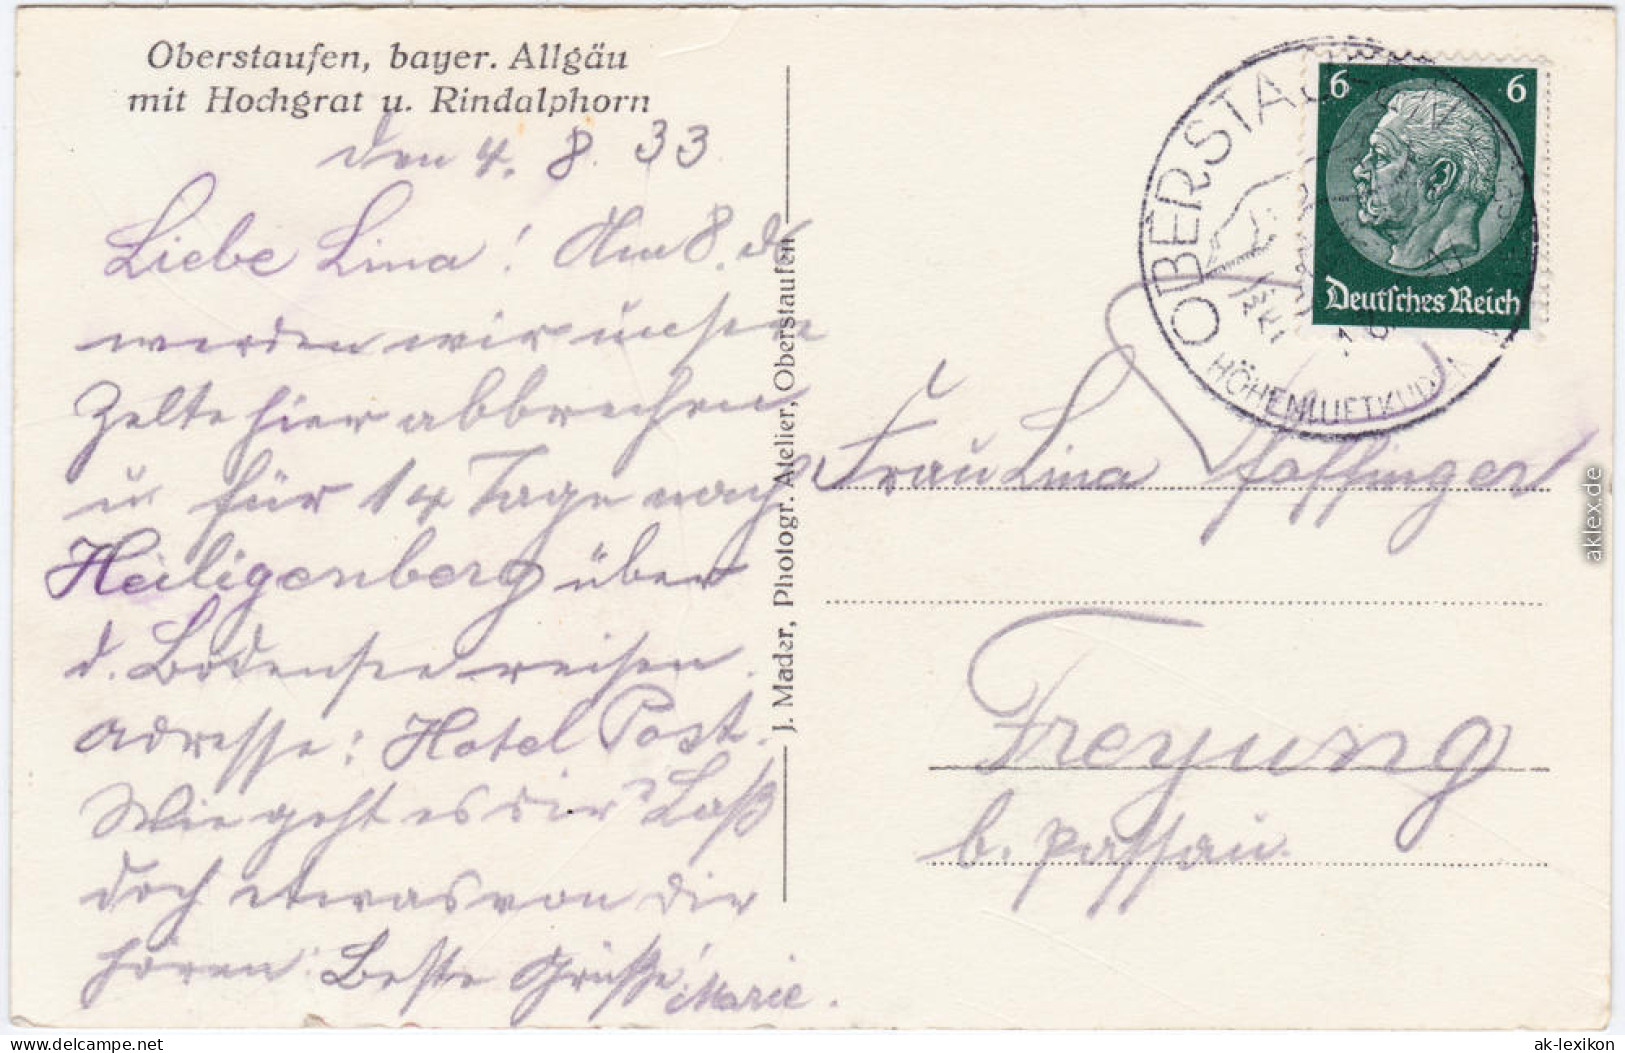 Oberstaufen, bayer. Allgäu
mit Hochgrat u. Rindalphorn
den 4. 8. 33
Liebe Lina! Am 8. ds
werden wir unsere
Zelte hier abbrechen
u. für 14 Tage nach
Heiligenberg über
d. Bodensee reisen.
Adresse: Hotel Post.
Wie geht es dir? Laß
doch etwas von dir
hören. Beste Grüße!
Marie.
J. Mader, Photogr. Atelier, Oberstaufen
OBERSTAUFEN
HÖHENLUFTKURORT
6 6
Deutsches Reich
Frau Lina
Freyung
b. Passau.
aklex.de
www.delcampe.net
ak-lexikon